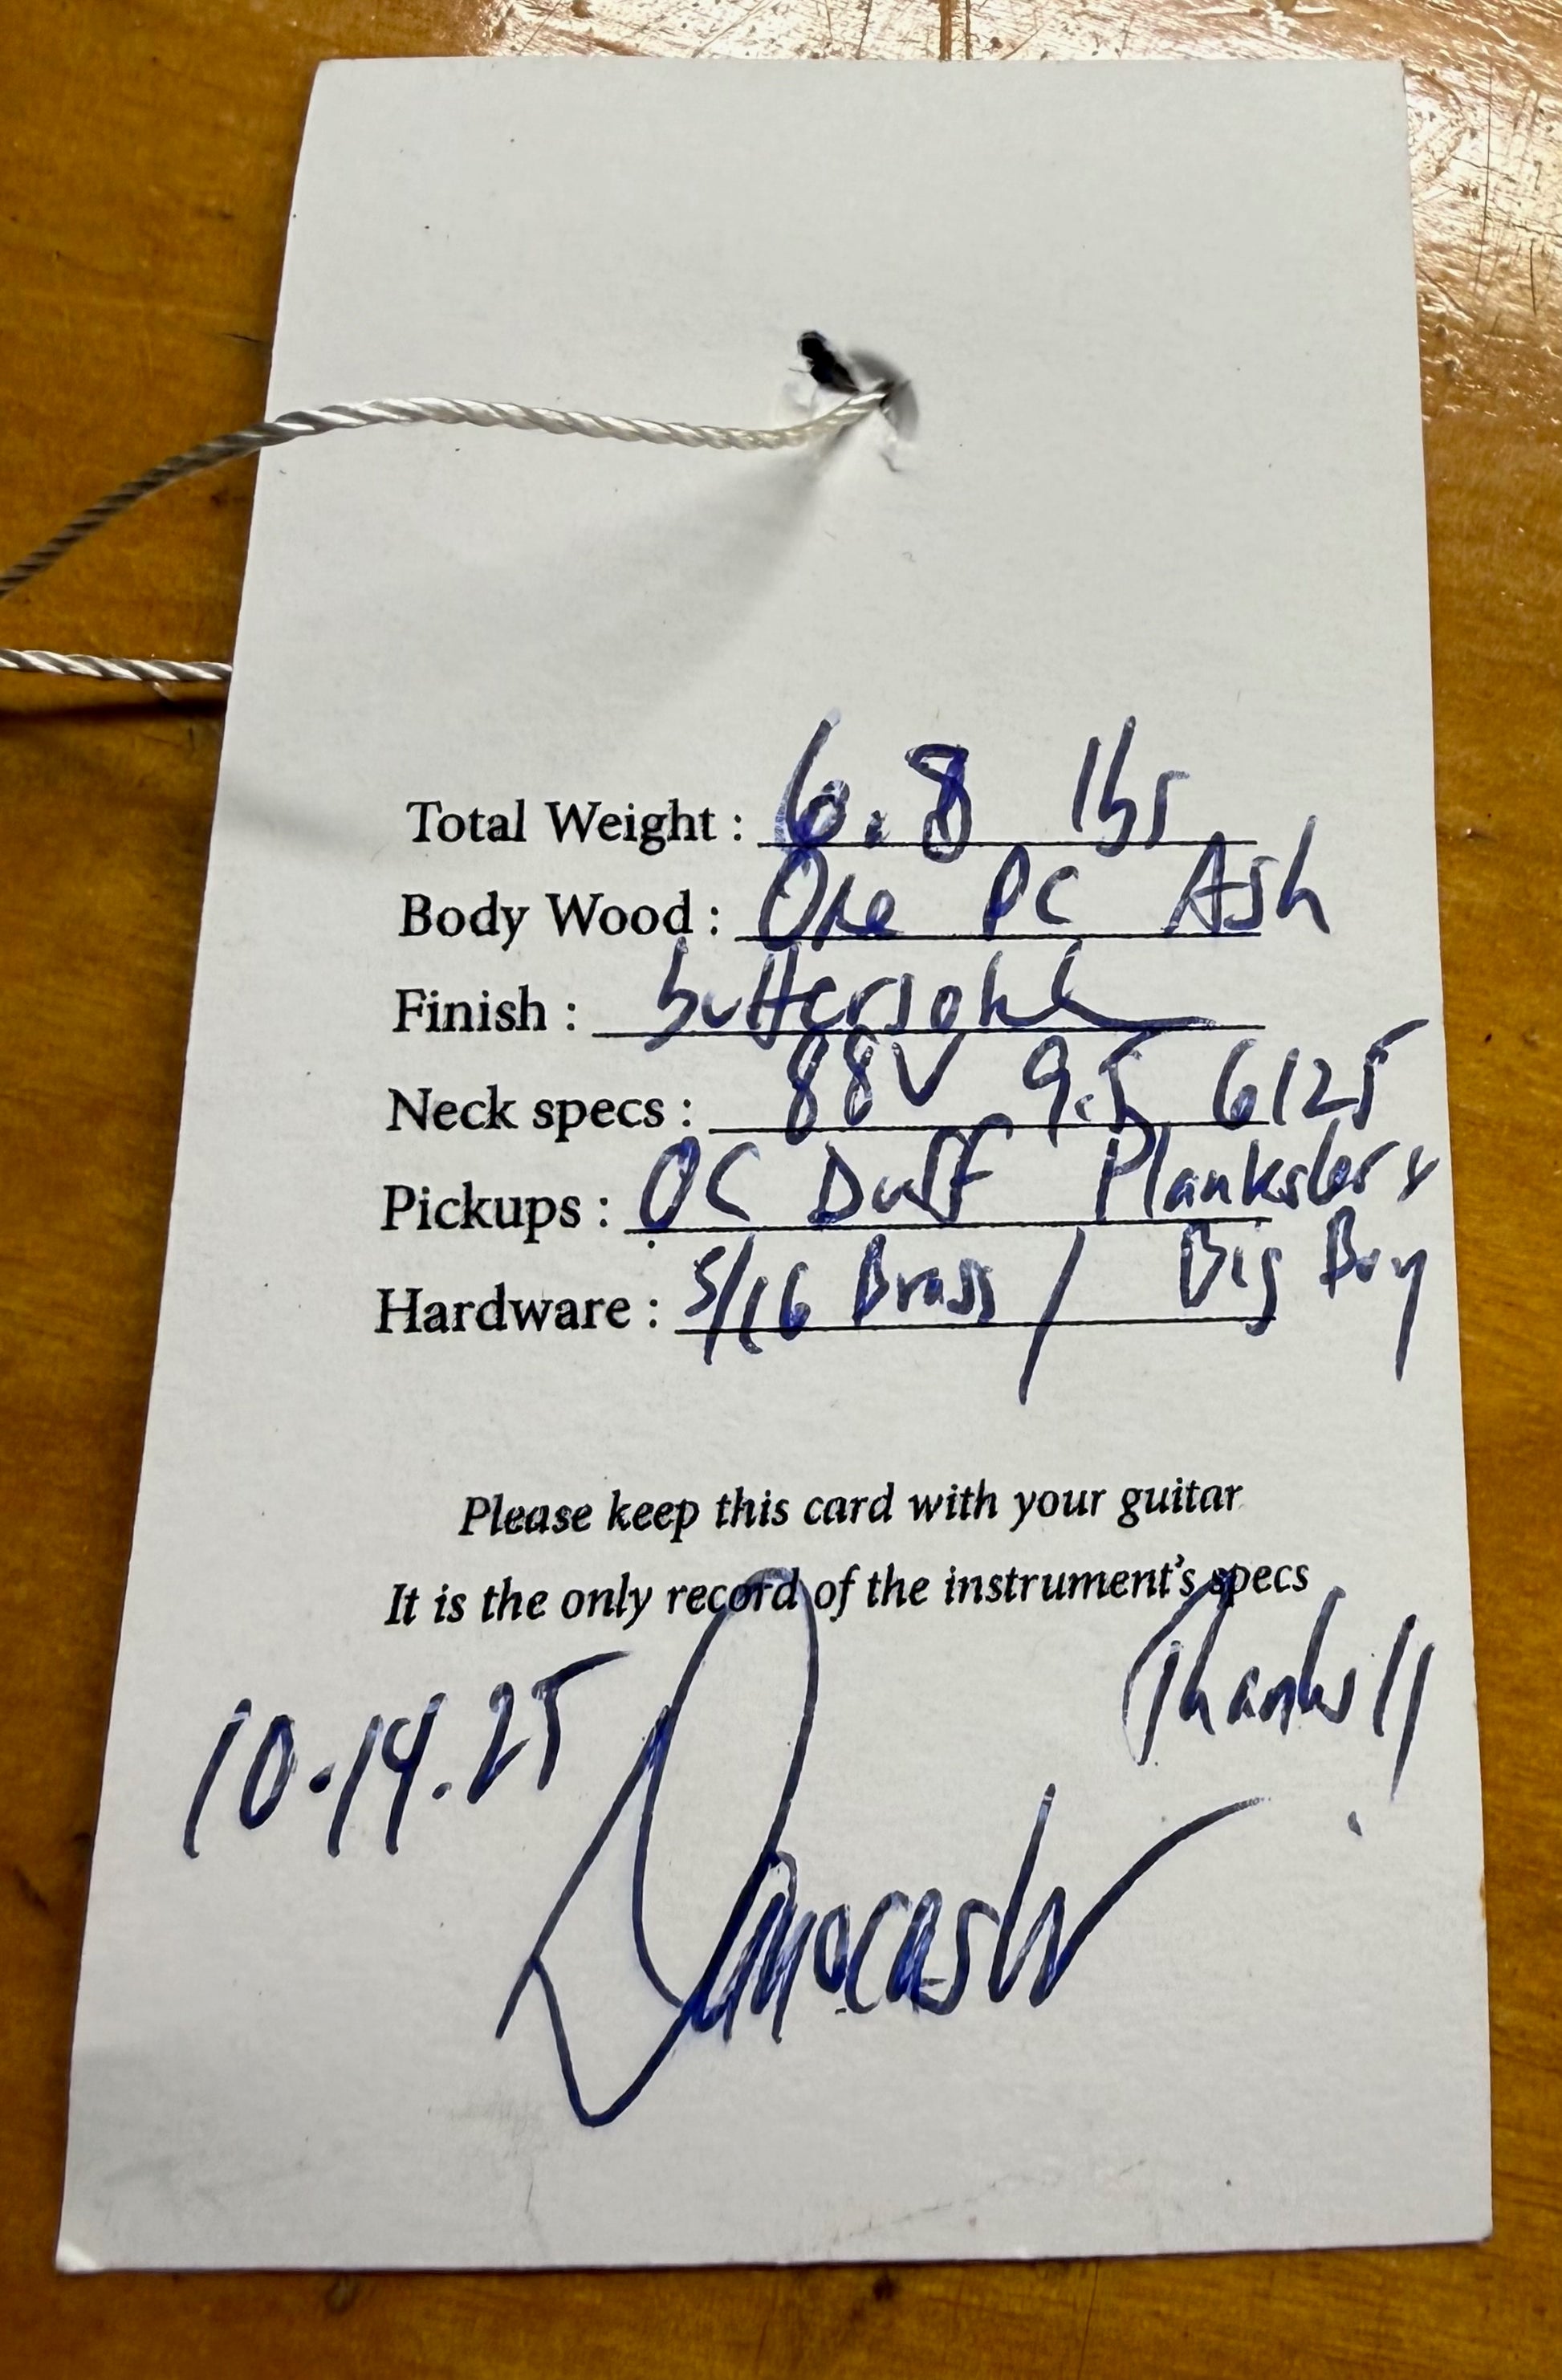 Total Weight : 6.8 lbs
Body Wood : One PC Ash
Finish : buttersotch
Neck specs : 88V 9.5 6125
Pickups : OC Duff Plankster &
Hardware : 5/16 Brass / Big Boy
Please keep this card with your guitar
It is the only record of the instrument's specs
Thanks!!
10.14.25
Danocaster